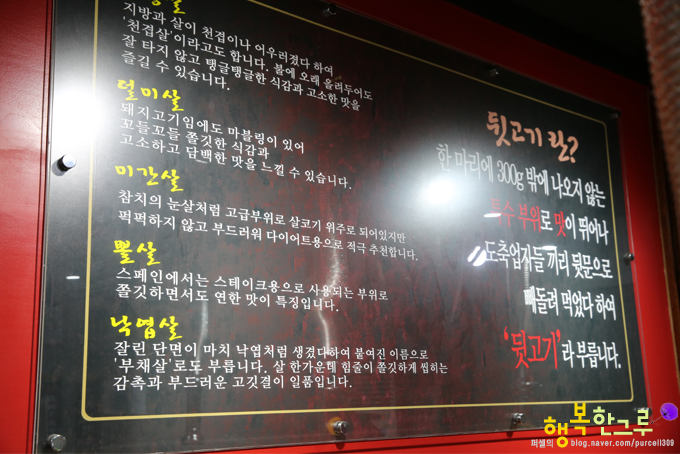 지방과 살이 천겹이나 어우러졌다 하여
'천겹살'이라고도 합니다. 불에 오래 올려두어도
잘 타지 않고 탱글탱글한 식감과 고소한 맛을
즐길 수 있습니다.
덜미살
돼지고기임에도 마블링이 있어
꼬들꼬들 쫄깃한 식감과
고소하고 담백한 맛을 느낄 수 있습니다.
미간살
참치의 눈살처럼 고급부위로 살코기 위주로 되어있지만
퍽퍽하지 않고 부드러워 다이어트용으로 적극 추천합니다.
뽈살
스페인에서는 스테이크용으로 사용되는 부위로
쫄깃하면서도 연한 맛이 특징입니다.
낙엽살
잘린 단면이 마치 낙엽처럼 생겼다하여 붙여진 이름으로
'부채살'로도 부릅니다. 살 한가운데 힘줄이 쫄깃하게 씹히는
감촉과 부드러운 고깃결이 일품입니다.
뒷고기 란?
한 마리에 300g 밖에 나오지 않는
특수 부위로 맛이 뛰어나
도축업자들 끼리 뒷문으로
빼돌려 먹었다 하여
'뒷고기'라 부릅니다.
행복한그루
퍼셀의 blog.naver.com/purcell309